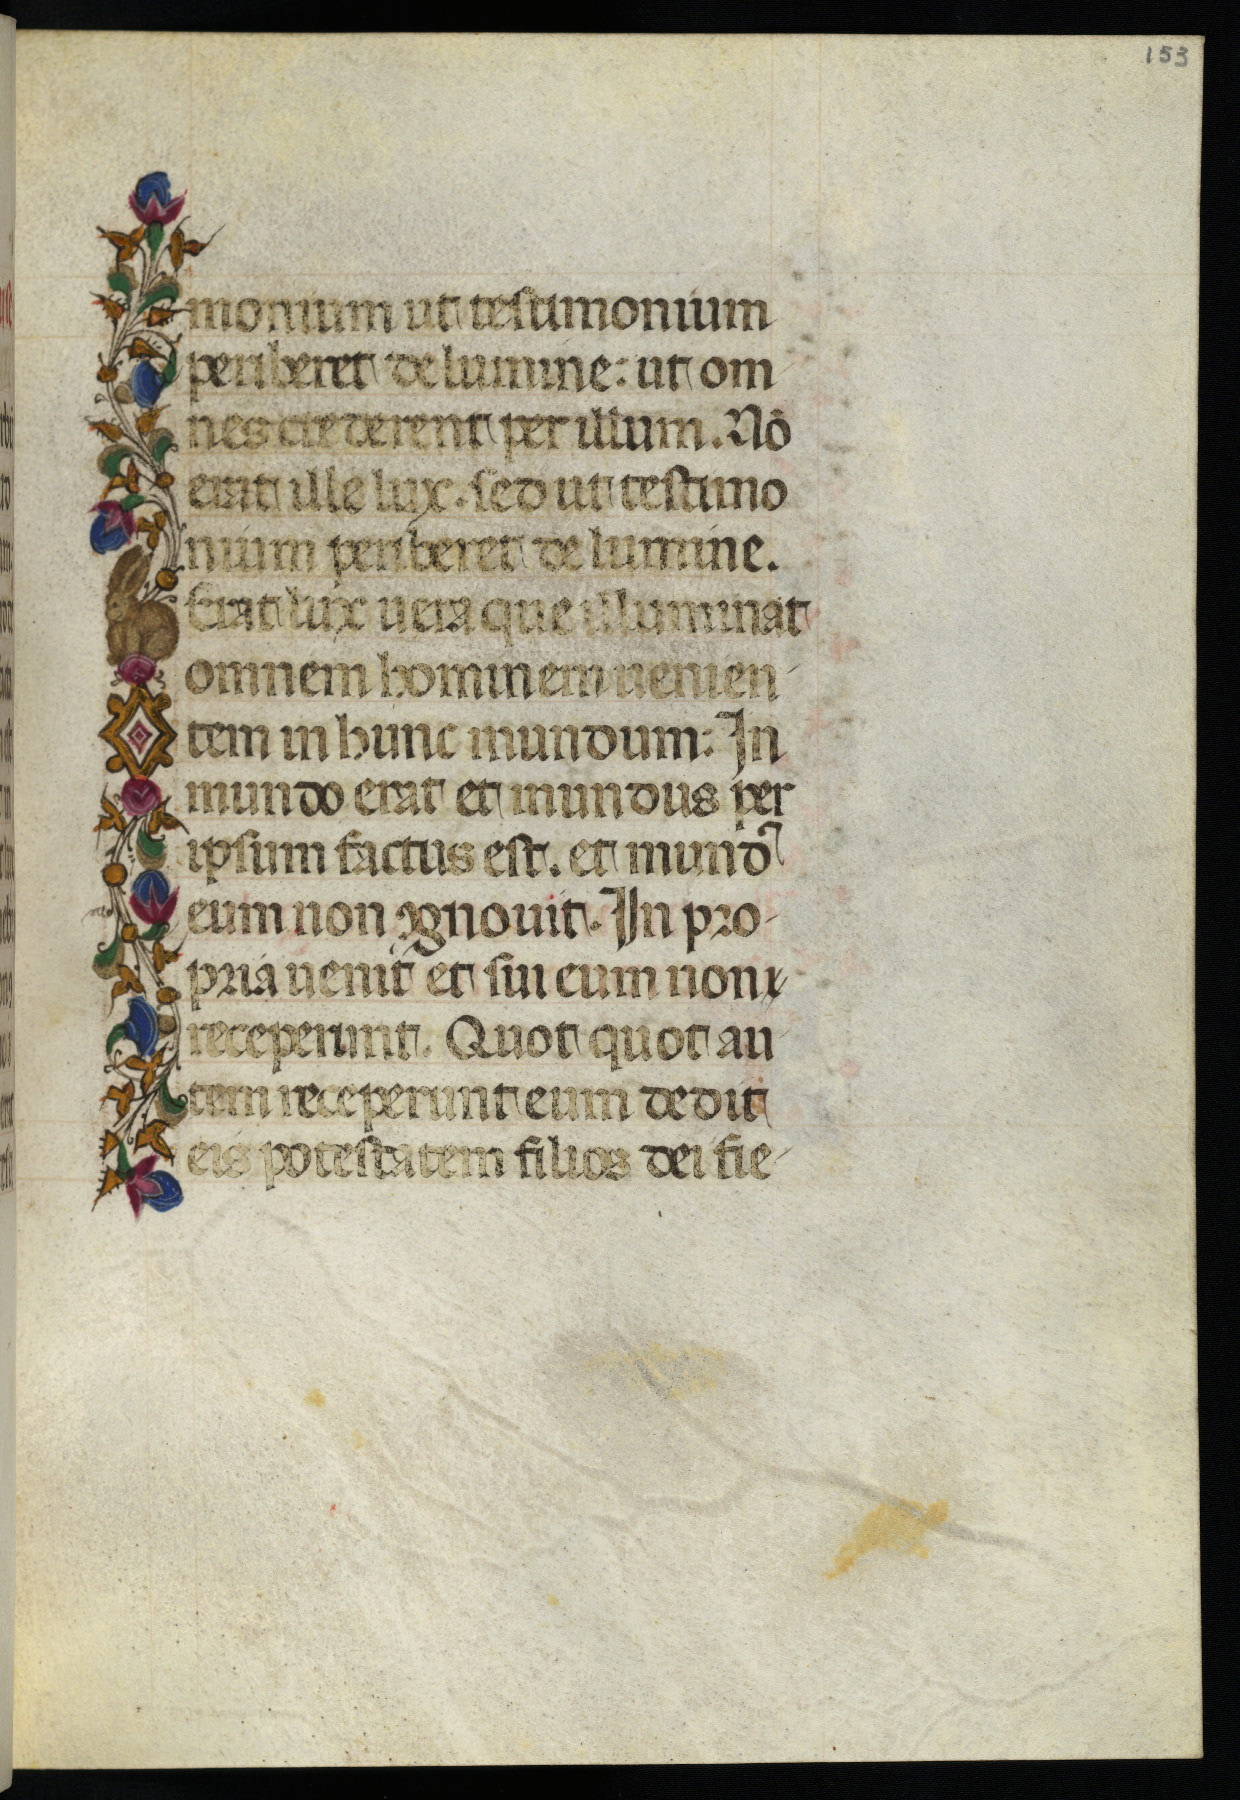 153
monium ut testimonium
periberet de lumine: ut om
nes crederent per illum. Nō
erat ille lux. sed ut testimo
nium periberet de lumine.
Erat lux uera que illuminat
omnem hominem uenien-
tem in hunc mundum: In
mundo erat et mundus per
ipsum factus est. et mundꝰ
eum non ꝯgnouit. In pro-
pria uenit et sui eum non
receperunt. Quot quot au-
tem receperunt eum dedit
eis potestatem filios dei fie-